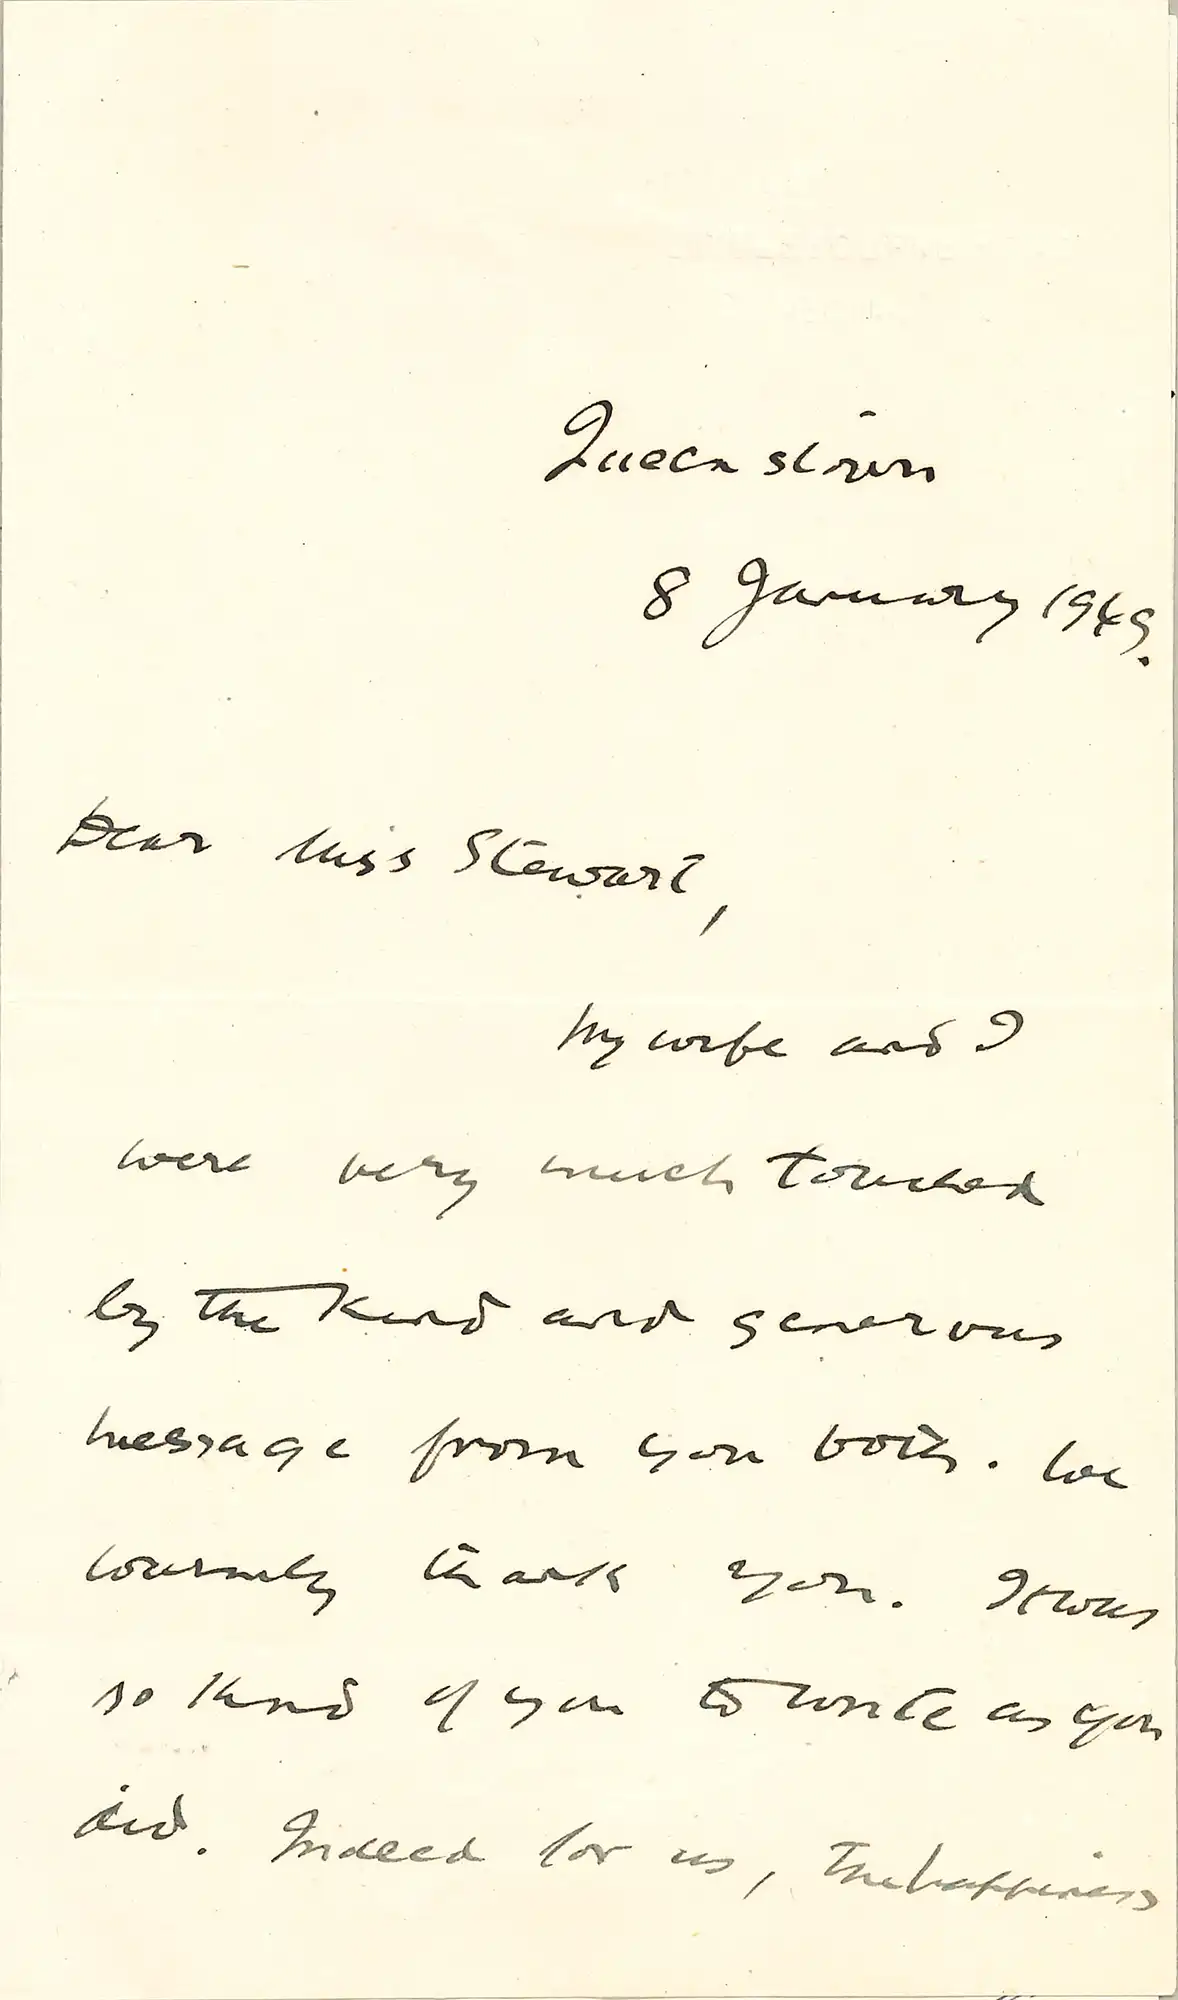 Queenstown
8 January 1949.
Dear Miss Stewart,
My wife and I
were very much touched
by the kind and generous
message from you both. We
warmly thank you. It was
so kind of you to write as you
did. Indeed for us, the happiness